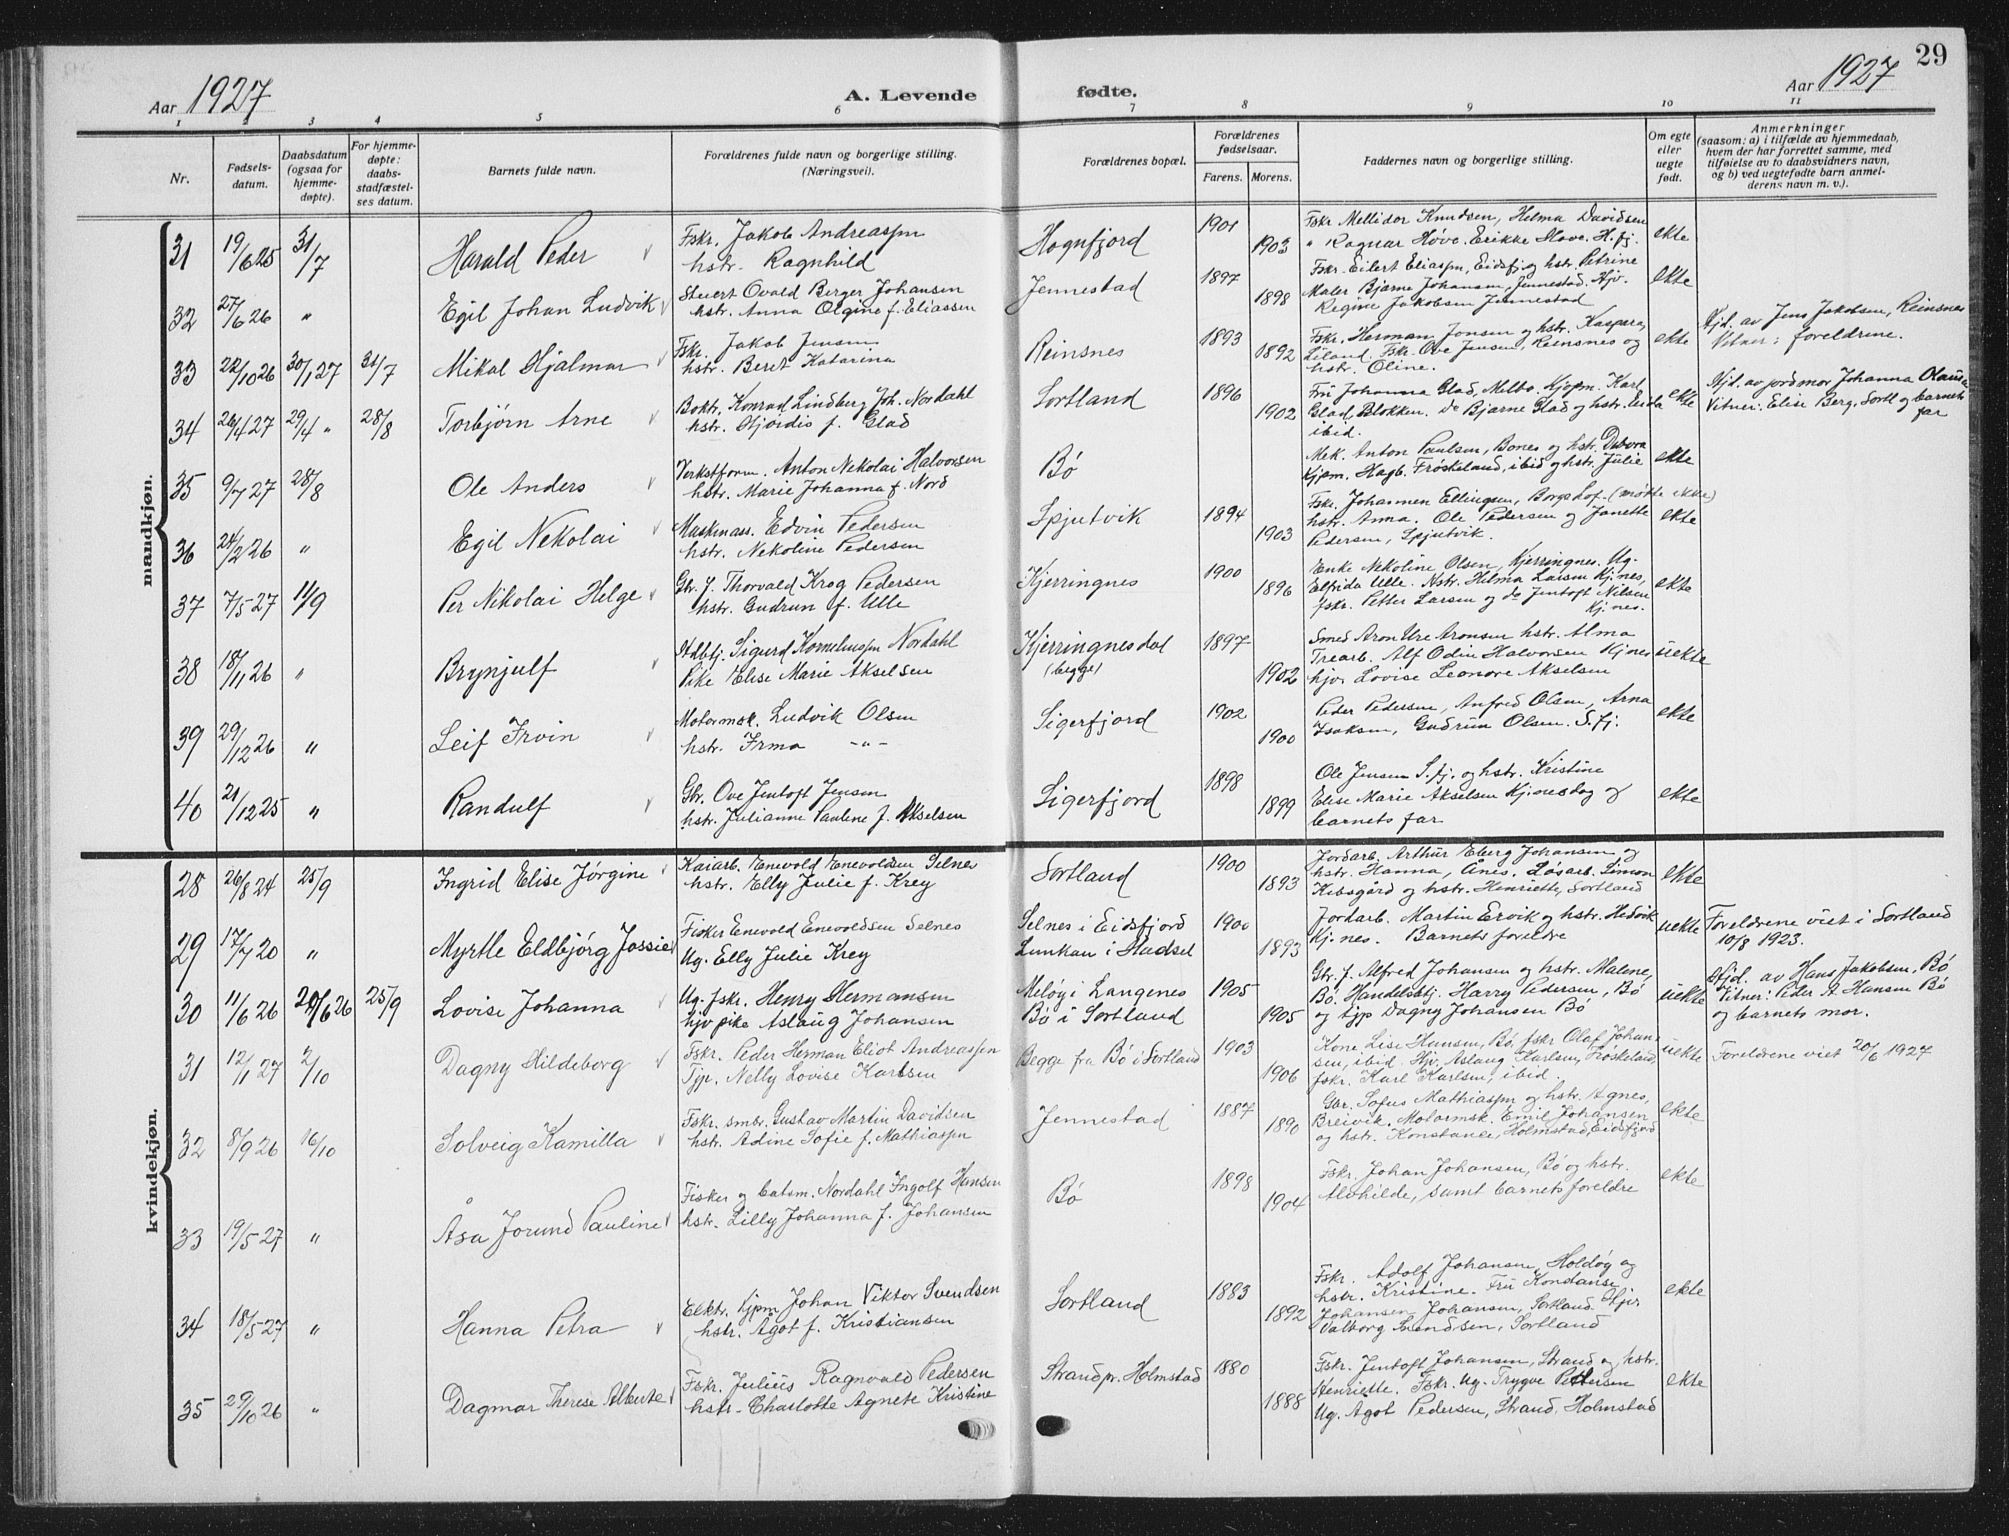 Aar 1927
A. Levende
fødte.
Aar 1927
29
1 2 3 4 5 6 7 8 9 10 11
Nr.
Fødsels-
datum.
Daabsdatum
(ogsaa for
hjemme-
døpte).
For hjemme-
døpte:
daabs-
stadfæstel-
ses datum.
Barnets fulde navn.
Forældrenes fulde navn og borgerlige stilling.
(Næringsvei).
Forældrenes bopæl.
Forældrenes
fødselsaar.
Farens. Morens.
Faddernes navn og borgerlige stilling.
Om egte
eller
uegte
født.
Anmerkninger
(saasom: a) i tilfælde av hjemmedaab,
hvem der har forrettet samme, med
tilføielse av to daabsvidners navn,
og b) ved uegtefødte barn anmel-
derens navn m. v.).
mandkjøn.
31 19/6 25 31/7 Harald Peder
Fskr. Jakob Andreasen
hstr. Ragnhild
Hognfjord 1901 1903
Fskr Mellidor Knudsen, Helma Davidsen
" Ragnar Hove. Erikke Hove. H.fj.
ekte
32 27/6 26 " Egil Johan Ludvik
Stuert Ovald Berger Johansen
hstr. Anna Olgine f. Eliassen
Jennestad 1897 1898
Fskr. Eilert Eliassen, Eidsfj og hstr. Petrine
Maler Bjarne Johansen, Jennestad. Hjv.
Regine Jakobsen Jennestad
ekte
33 22/10 26 30/1 27 31/7 Mikal Hjalmar
Fsk. Jakob Jensen
hstr. Beret Katarina
Reinsnes 1893 1892
Fskr. Herman Jonsen og hstr. Kaspara,
Liland. Fsk. Ove Jensen, Reinsnes og
hstr. Oline.
ekte
Hjd. av Jens Jakobsen, Reinsnes
Vitner: foreldrene.
34 26/4 27 29/4 " 28/8 Torbjørn Arne
Boktr. Konrad Lindberg Joh. Nordahl
hstr. Hjørdis f. Glad
Sortland 1896 1902
Fru Johanna Glad, Melbo. Kjøpm. Karl
Glad, Blokken. Do Bjarne Glad og hstr. Eida
ibid.
ekte
Hjd. av jordmor Johanna Olausen
Vitner: Elise Berg, Sortl og barnets
far
35 9/7 27 28/8 Ole Anders
Verkstform. Anton Nekolai Halvorsen
hstr. Marie Johanna f. Nord
Bø
Mek. Anton Paulsen, Bones og hstr. Debora
Kjpm. Hagb. Frøskeland, ibid og hstr. Julie
ekte
36 24/2 26 " Egil Nekolai
Maskinass. Edvin Pedersen
hstr. Nekoline Pedersen
Spjutvik 1894 1903
Fskr. Johannen Ellingsen, Borgs Lof. (møtte ikke)
hstr. Anna. Ole Pedersen og Janette
Pedersen, Spjutvik.
ekte
37 7/5 27 11/9 Per Nikolai Helge
Gbr. f. Thorvald Krog Pedersen
hstr. Gudrun f. Ulle
Kjerringnes 1900 1896
Enke Nekoline Olsen, Kjerringnes. Ug.
Elfrida Ulle. Hstr. Helma Larsen Kj.nes,
fskr. Petter Larsen og do Jentoft Nilsen
Kj. nes.
ekte
38 18/11 26 " Brynjulf
Hdbtj. Sigurd Korneliussen Nordahl
Pike Elise Marie Akselsen
Kjerringnesdal
(begge)
1897 1902
Smed Aron Ure Aronsen hstr. Alma
Trearb. Alf Odin Halvorsen Kj nes
hjv Lovise Leonore Akselsen
uekte
39 29/12 26 " Leif Irvin
Motormsk. Ludvik Olsen
hstr. Irma -"-
Sigerfjord 1902 1900
Peder Pedersen, Anfred Olsen, Arna
Isaksen, Gudrun Olsen. S. fj.
ekte
40 21/12 25 " Randulf
Gbr. Ove Jentoft Jensen
hstr. Julianne Pauline f. Akselsen
Sigerfjord 1898 1899
Ole Jensen S. fj. og hstr. Kristine
Elise Marie Akselsen Kj.nesdag og
barnets far
ekte
kvindekjøn.
28 26/8 24 25/9 Ingrid Elise Jørgine
Kaiarb. Enevold Enevoldsen Selnes
hstr. Elly Julie f. Krey
Sortland 1900 1893
Jordarb. Arthur Eberg Johansen og
hstr. Hanna, Ånes. Løsarb. Simon
Kibsgård og hstr. Henriette, Sortland
ekte
29 17/7 20 " Myrtle Eldbjörg Jossie
Fisker Enevold Enevoldsen Selnes
Ug. Elly Julie Krey
Selnes i Eidsfjord
Lunkan i Hadsel
1900 1893
Jordarb. Martin Ervik og hstr. Hedvik
Kj. nes. Barnets foreldre
uekte
Foreldrene viet i Sortland
10/8 1923.
30 11/6 26 20/6 26 25/9 Lovise Johanna
Ug. fskr. Henry Hermansen
hjv pike Aslaug Johansen
Meløy i Langenes
Bø i Sortland
1905 1905
Gbr. f. Alfred Johansen og hstr. Malene,
Bø. Handelsbtj. Harry Pedersen, Bø
og typ Dagny Johansen Bø
uekte
Hjd. av Hans Jakobsen, Bø
Vitner: Peder A. Hansen Bø
og barnets mor.
31 12/11 27 2/10 Dagny Hildeborg
Fskr. Peder Herman Eliot Andreassen
Typ. Nelly Lovise Karlsen
Begge fra Bø i Sortland 1903 1906
Kone Lise Hansen, Bø. fskr Olaf Johan-
sen, ibid. Hjv. Aslaug Karlsen, Frøskeland,
fskr. Karl Karlsen, ibid.
uekte
Foreldrene viet 20/6 1927
32 8/9 26 16/10 Solveig Kamilla
Fskr. smbr. Gustav Martin Davidsen
hstr. Adine Sofie f. Mathiassen
Jennestad 1887 1890
Gbr. Sofus Mathiassen og hstr. Agnes,
Breivik. Motormsk. Emil Johansen
og hstr. Konstanse, Holmstad, Eidsfjord
ekte
33 19/5 27 " Åsa Jorund Pauline
Fisker og batsm. Nordahl Ingolf Hansen
hstr. Lilly Johanna f. Johansen
Bø 1898 1904
Fskr. Johan Johansen, Bø og hstr.
Alvhilde, samt barnets foreldre
ekte
34 18/5 27 " Hanna Petra
Elktr. Kjpm Johan Viktor Svendsen
hstr. Agot f. Kristiansen
Sortland 1883 1892
Fskr. Adolf Johansen, Holdøy og
hstr. Kristine. Fru Konstanse
Johansen Johansen, Sortland. Hjv
Valborg Svendsen, Sortland
ekte
35 29/10 26 " Dagmar Therese Alberte
Fskr. Julius Ragnvald Pedersen
hstr. Charlotte Agnete Kristine
Strandpr. Holmstad 1880 1888
Fskr. Jentoft Johansen, Strand og hstr.
Henriette. Fskr. Ug. Trygve Pettersen
Ug. Agot Pedersen, Strand, Holmstad
ekte